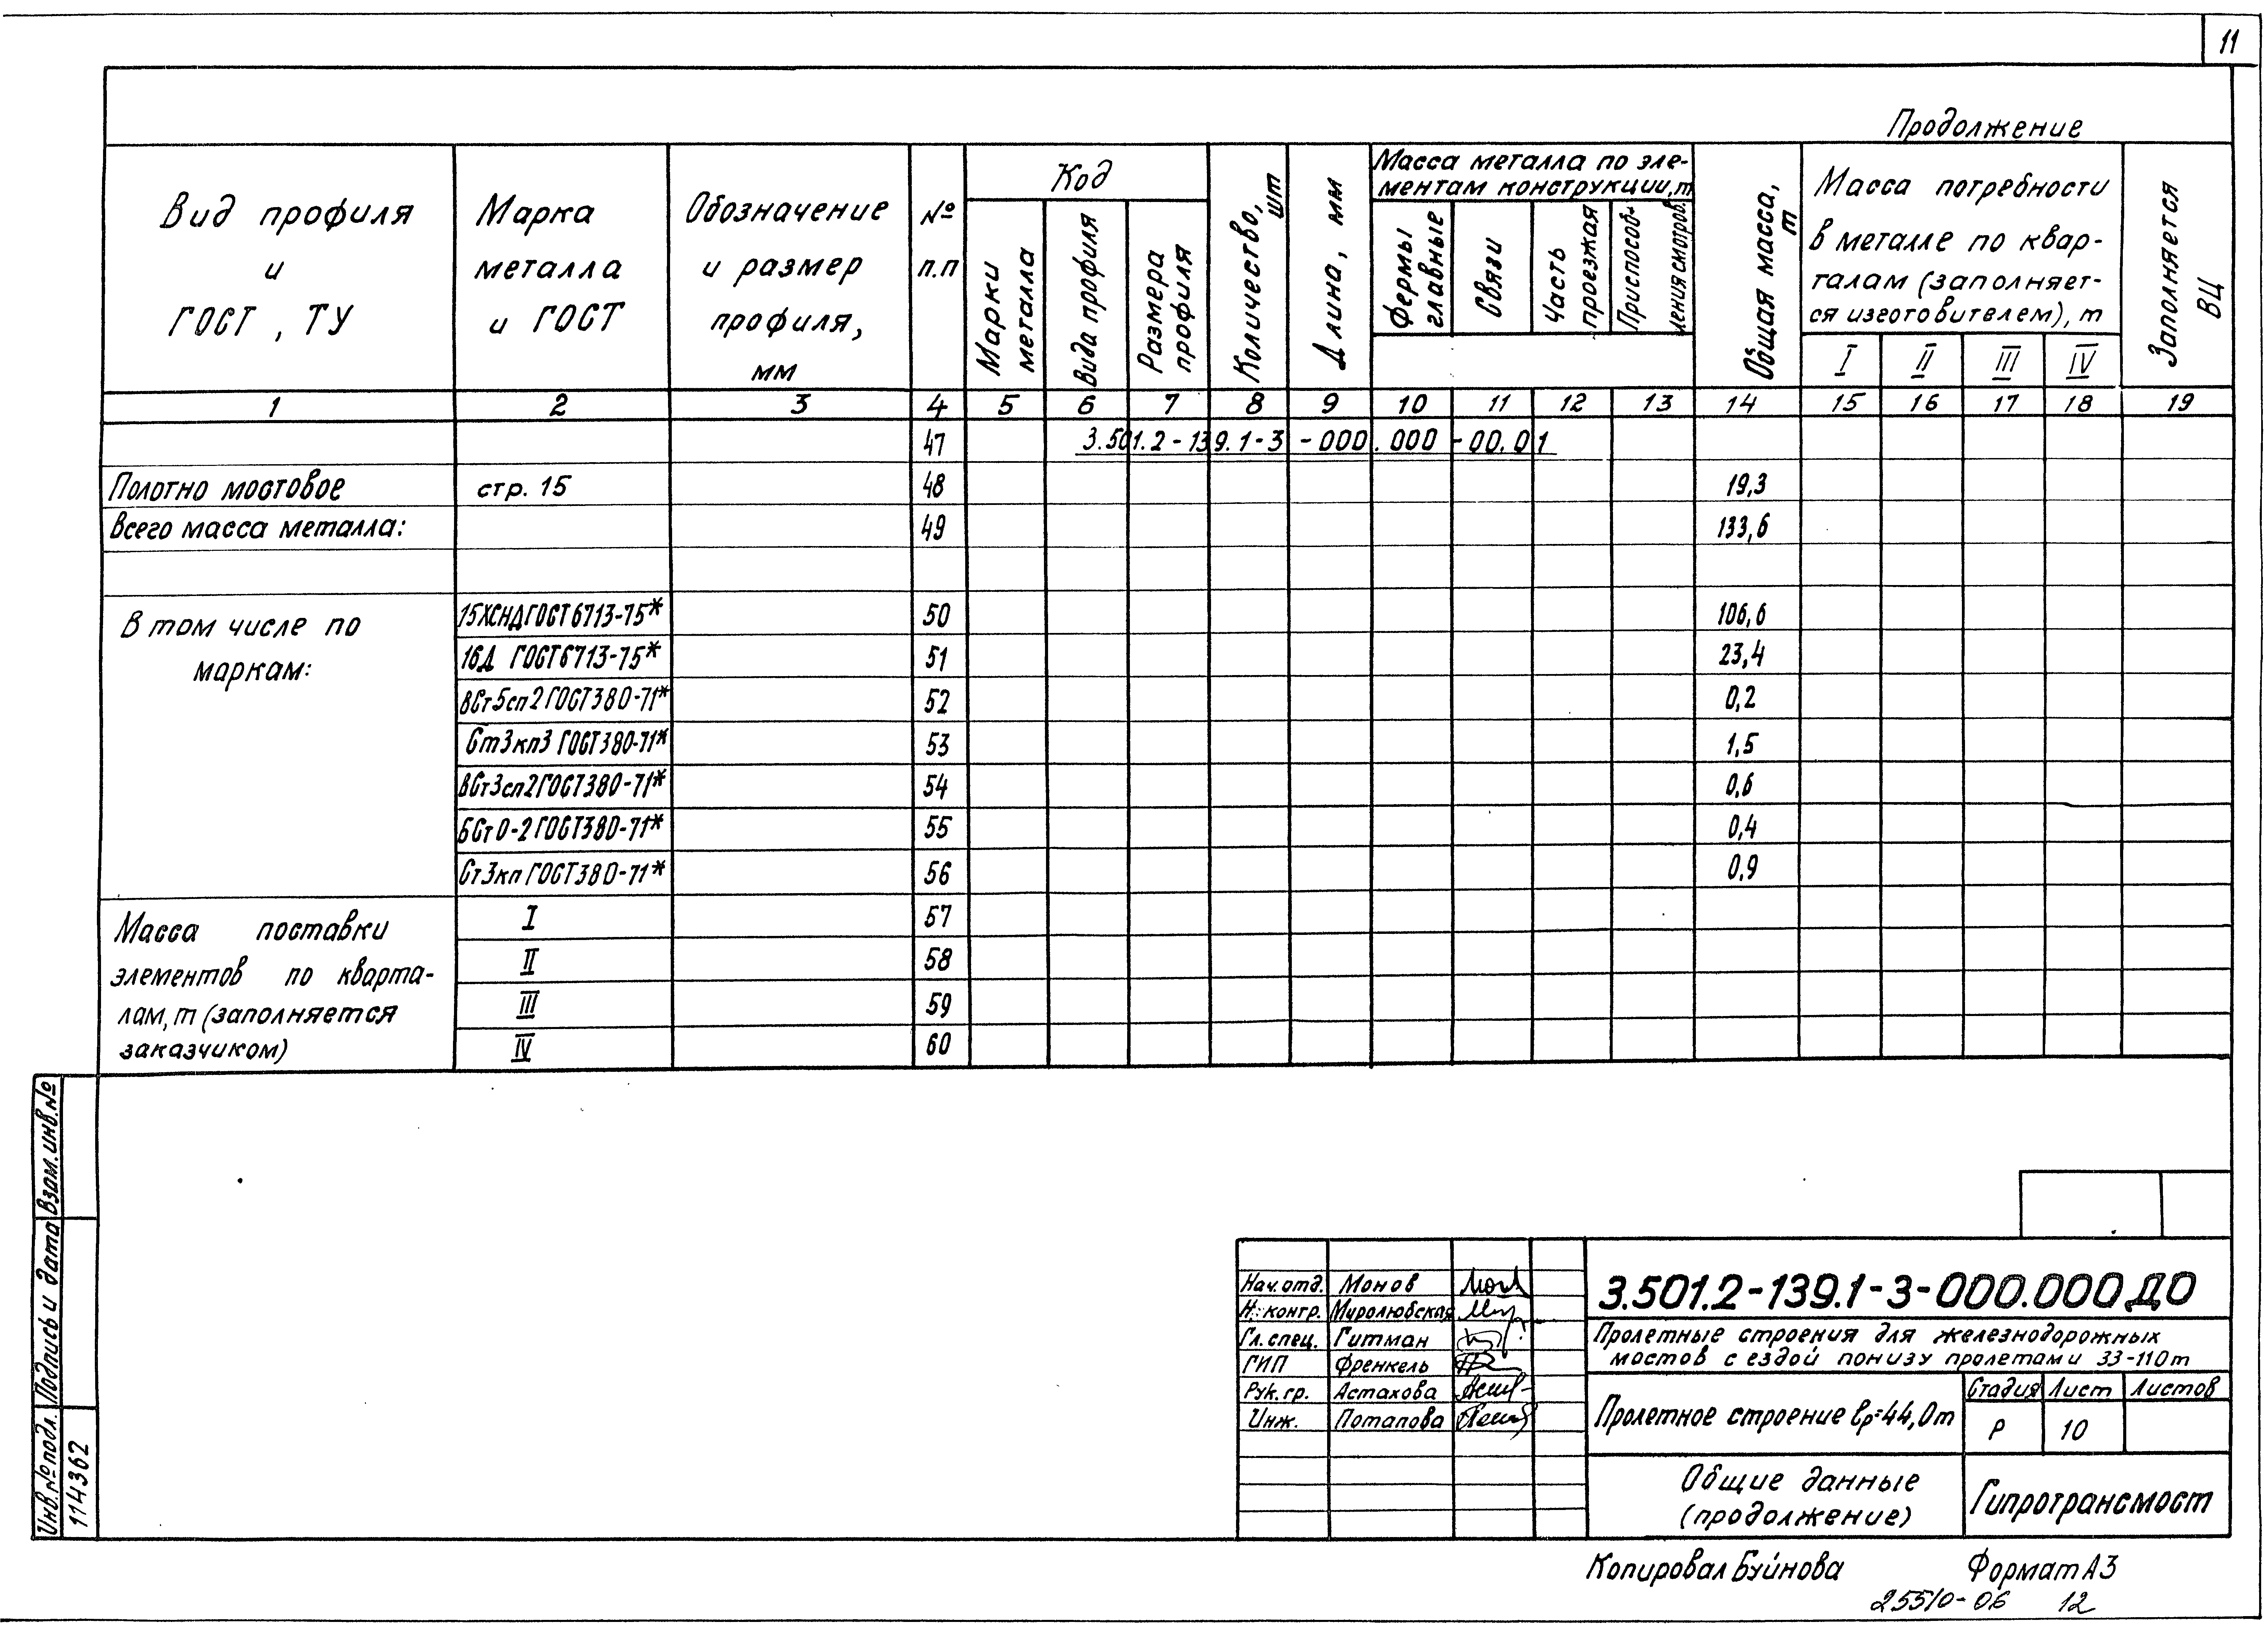 11
Продолжение
Вид профиля и ГОСТ, ТУ
Марка металла и ГОСТ
Обозначение и размер профиля, мм
№ п.п
Код
Марки металла
Вида профиля
Размера профиля
Количество, шт
Длина, мм
Масса металла по эле-
ментам конструкции, т
Фермы главные
Связи
Часть проезжая
Приспособ-
ления смотров.
Общая масса, т
Масса потребности
в металле по квар-
талам (заполняет-
ся изготовителем), т
I II III IV
Заполняется ВЦ
1 2 3 4 5 6 7 8 9 10 11 12 13 14 15 16 17 18 19
47 3.501.2-139.1-3-000.000-00.01
Полотно мостовое стр. 15 48 19,3
Всего масса металла: 49 133,6
В том числе по
маркам:
15ХСНД ГОСТ 6713-75* 50 106,6
16Д ГОСТ 6713-75* 51 23,4
ВСт5сп2 ГОСТ 380-71* 52 0,2
Ст3кп3 ГОСТ 380-71* 53 1,5
ВСт3сп2 ГОСТ 380-71* 54 0,6
БСт0-2 ГОСТ 380-71* 55 0,4
Ст3кп ГОСТ 380-71* 56 0,9
Масса поставки
элементов по кварта-
лам, т (заполняется
заказчиком)
I 57
II 58
III 59
IV 60
Взам. инв. №
Подпись и дата
Инв. № подл.
114362
Нач. отд. Монов
Н. контр. Миролюбская
Гл. спец. Гитман
ГИП Френкель
Рук. гр. Астахова
Инж. Потапова
3.501.2-139.1-3-000.000 ДО
Пролетные строения для железнодорожных
мостов с ездой понизу пролетами 33-110 m
Пролетное строение lр=44,0 m
Стадия Лист Листов
Р 10
Общие данные
(продолжение)
Гипротрансмост
Копировал Буйнова Формат А3
25510-06 12